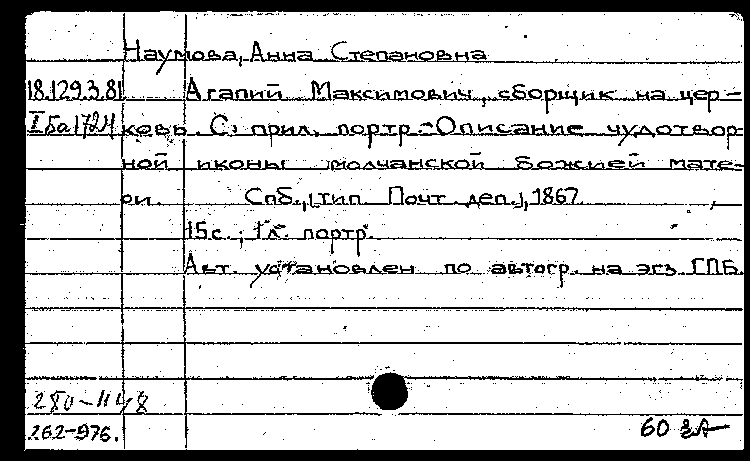 Наумова, Анна Степановна
18.129.3.81 Агапий Максимович, сборщик на цер-
ковь. С прил. портр.-Описание чудотвор-
ной иконы молчанской божией мате-
ри. Спб., [тип. Почт. деп.], 1867.
15 с.; 1 л. портр.
Авт. установлен по автогр. на экз. ГПБ.
262-976.
60